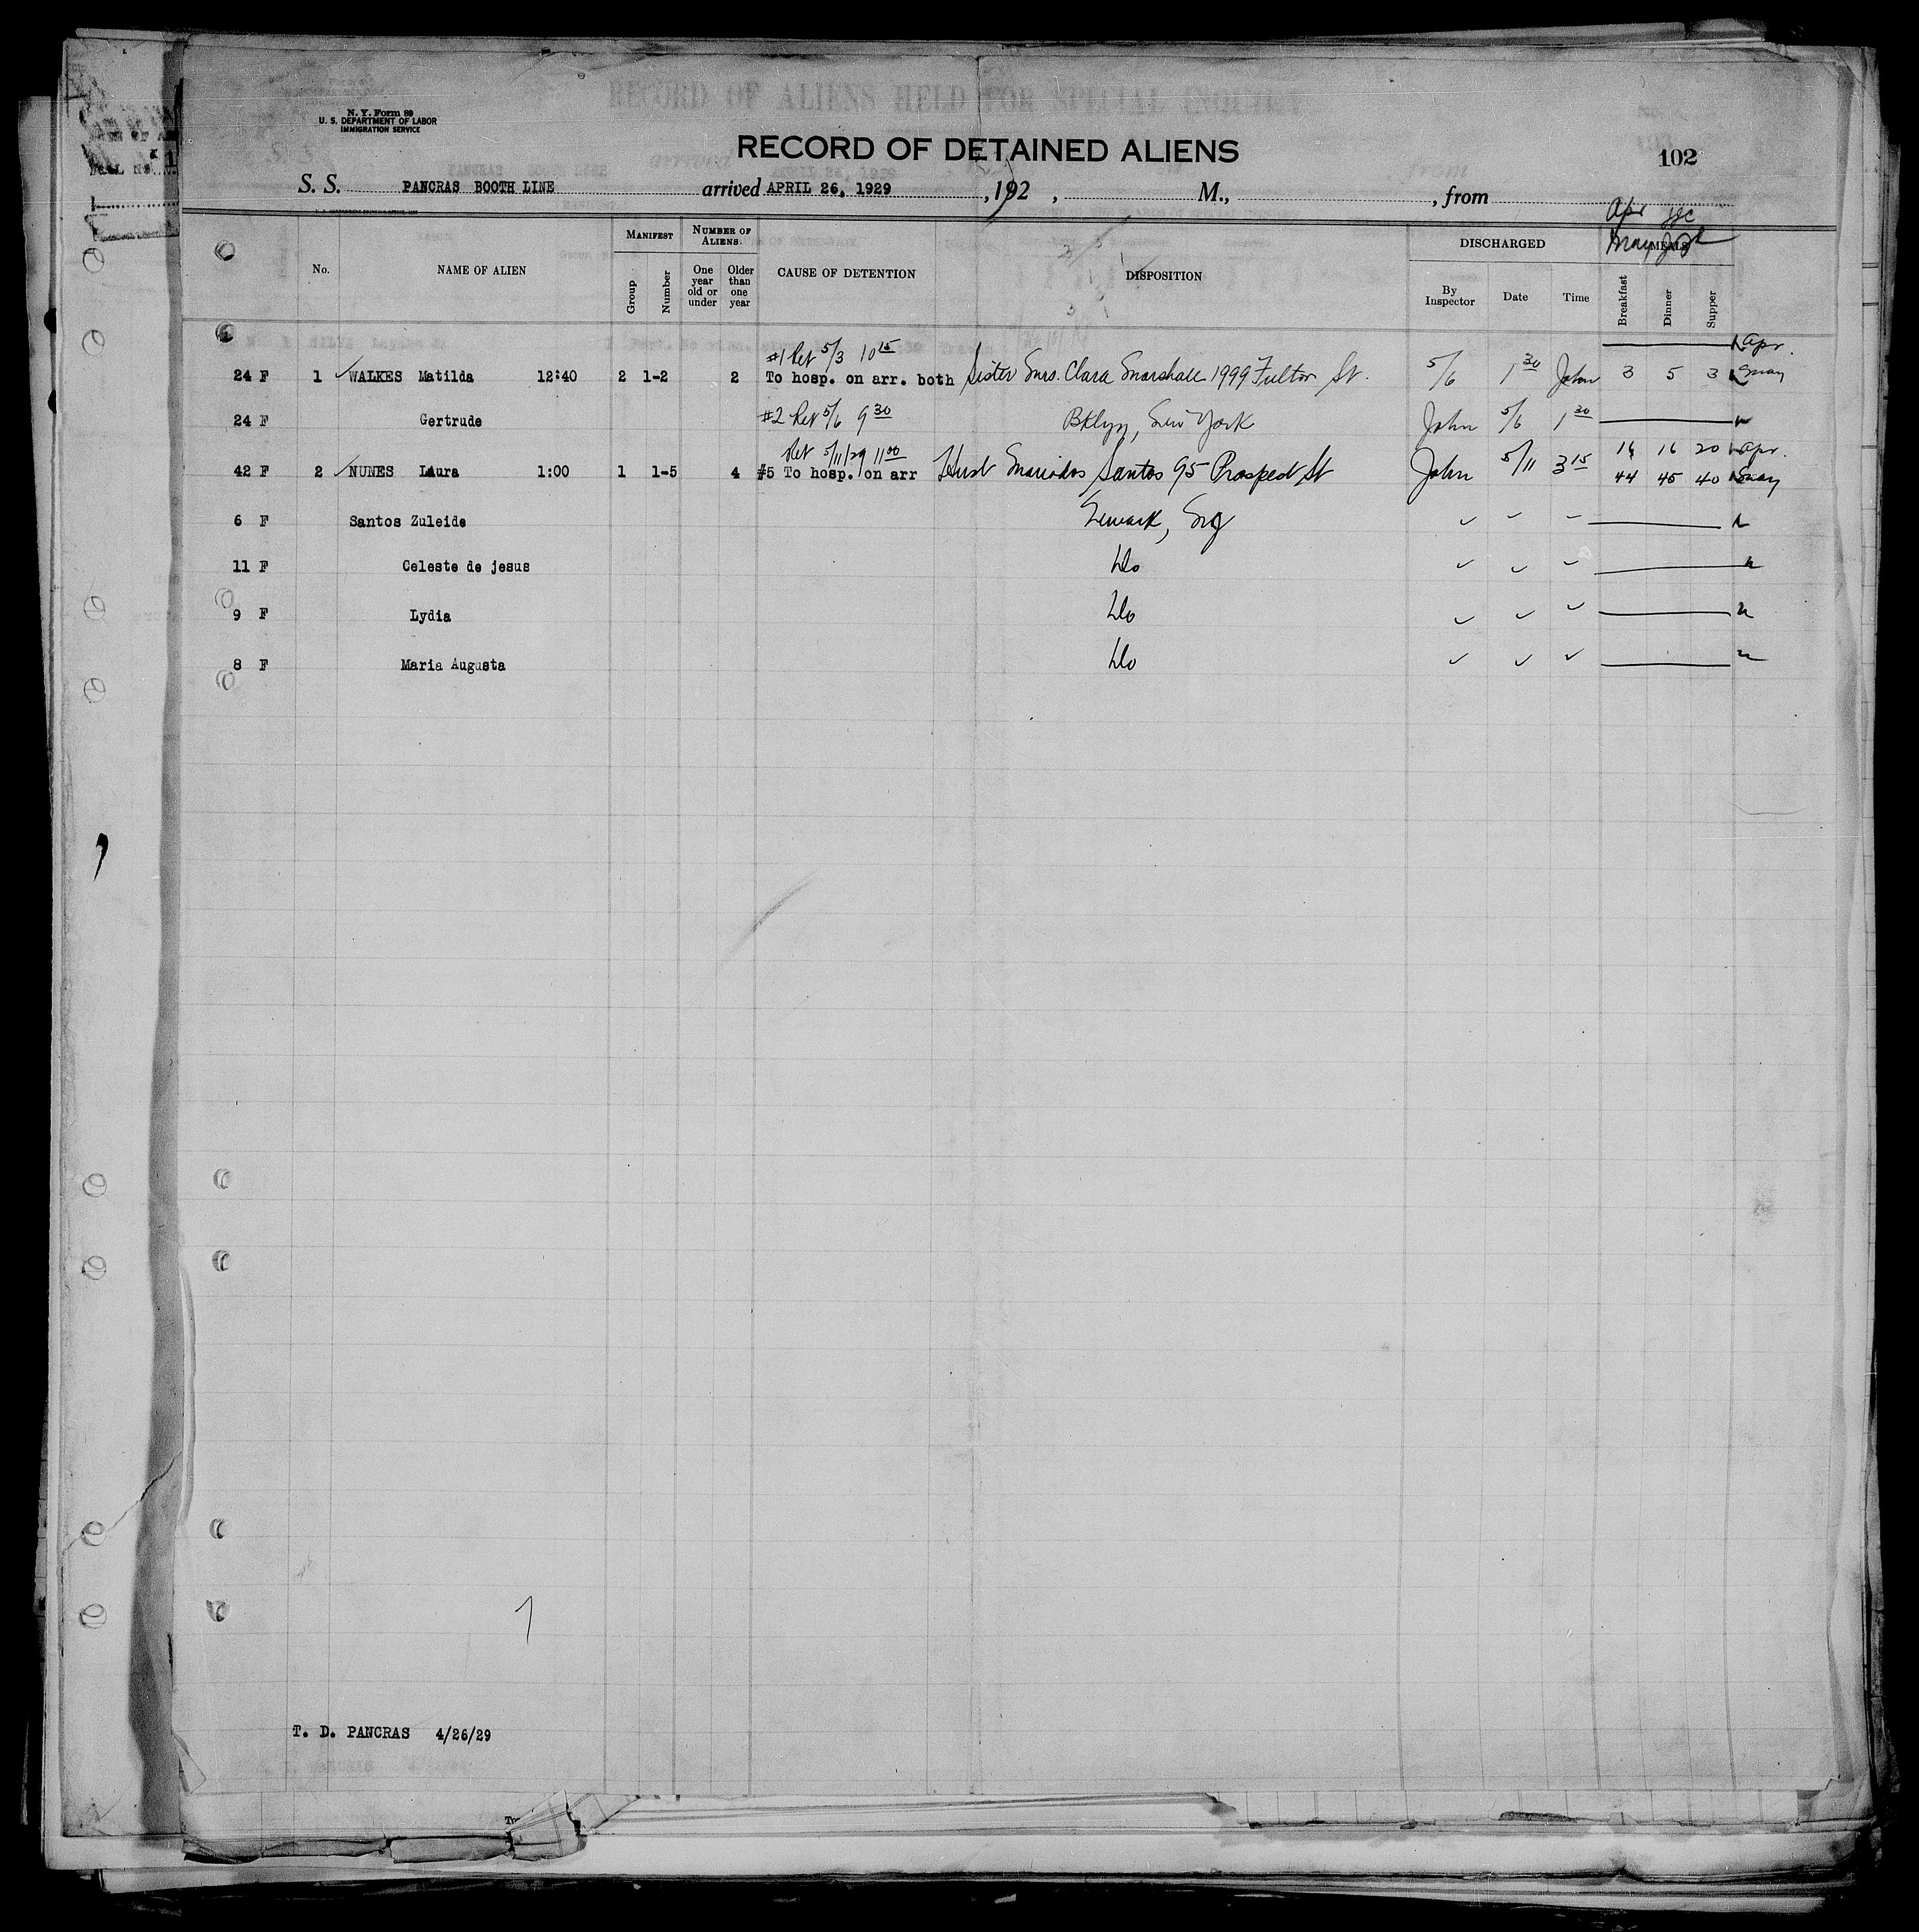 N. Y. Form 89
U. S. DEPARTMENT OF LABOR
IMMIGRATION SERVICE
RECORD OF ALIENS HELD FOR SPECIAL INQUIRY
RECORD OF DETAINED ALIENS
102
S. S. PANCRAS BOOTH LINE arrived APRIL 26, 1929 , 192 , M., , from
Apr
May
No. NAME OF ALIEN MANIFEST Group Number NUMBER OF ALIENS. One year old or under Older than one year CAUSE OF DETENTION DISPOSITION DISCHARGED By Inspector Date Time MEALS Breakfast Dinner Supper
#1 Ret 5/3 10 15 Apr.
24 F 1 WALKES Matilda 12:40 2 1-2 2 To hosp. on arr. both Sister Mrs. Clara Marshall 1999 Fulton St. 5/6 1 30 John 3 5 3 May
24 F Gertrude #2 Ret 5/6 9 30 Bklyn, New York John 5/6 1 30
Ret 5/11/29 11 00 16 16 20 Apr.
42 F 2 NUNES Laura 1:00 1 1-5 4 #5 To hosp. on arr Husb Mario dos Santos 95 Prospect St John 5/11 3 15 44 45 40 May
6 F Santos Zuleide Newark, NJ
11 F Celeste de jesus Do
9 F Lydia Do
8 F Maria Augusta Do
7
T. D. PANCRAS 4/26/29